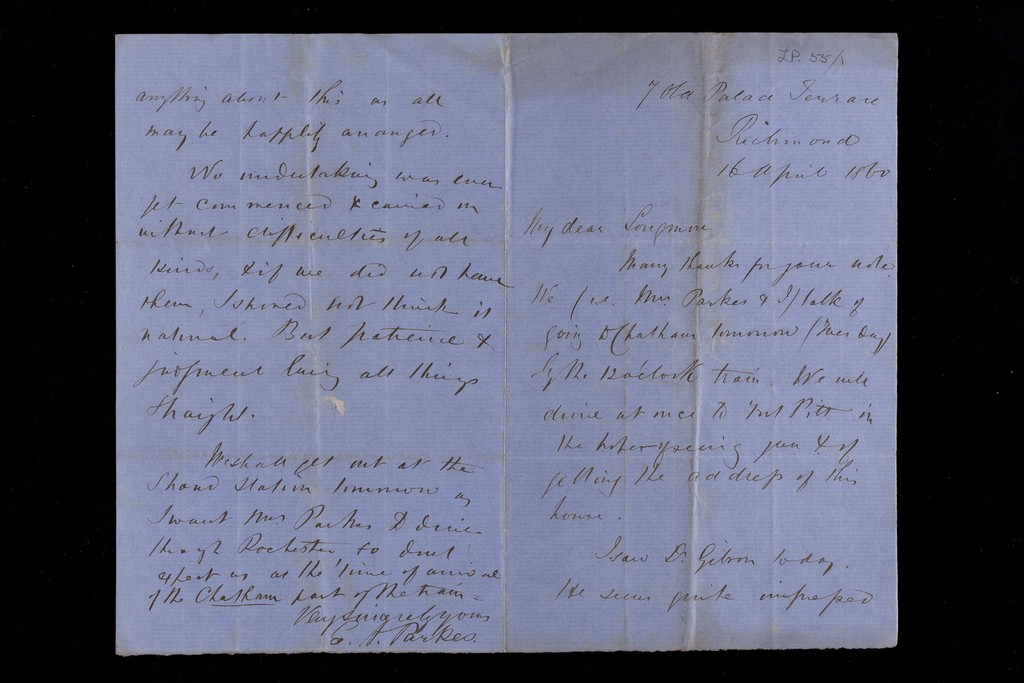 LP. 55/1
7 Old Palace Terrace
Richmond
16 April 1860
My dear Longmore
Many thanks for your note.
We (i.e. Mrs Parkes & I) talk of
going to Chatham tomorrow (Tuesday)
by the 12 o'clock train. We will
drive at once to Fort Pitt in
the hope of seeing you & of
getting the address of this
house.
I saw Dr. Gibson today.
He seems quite impressed
anything about this as all
may be happily arranged.
No undertaking was ever
yet commenced & carried on
without difficulties of all
kinds, & if we did not have
them, I should not think it
natural. But patience &
judgment bring all things
straight.
We shall get out at the
Strood Station tomorrow as
I want Mrs Parkes to drive
through Rochester, so don't
expect us at the time of arrival
of the Chatham part of the train -
Very sincerely yours
E. A. Parkes.